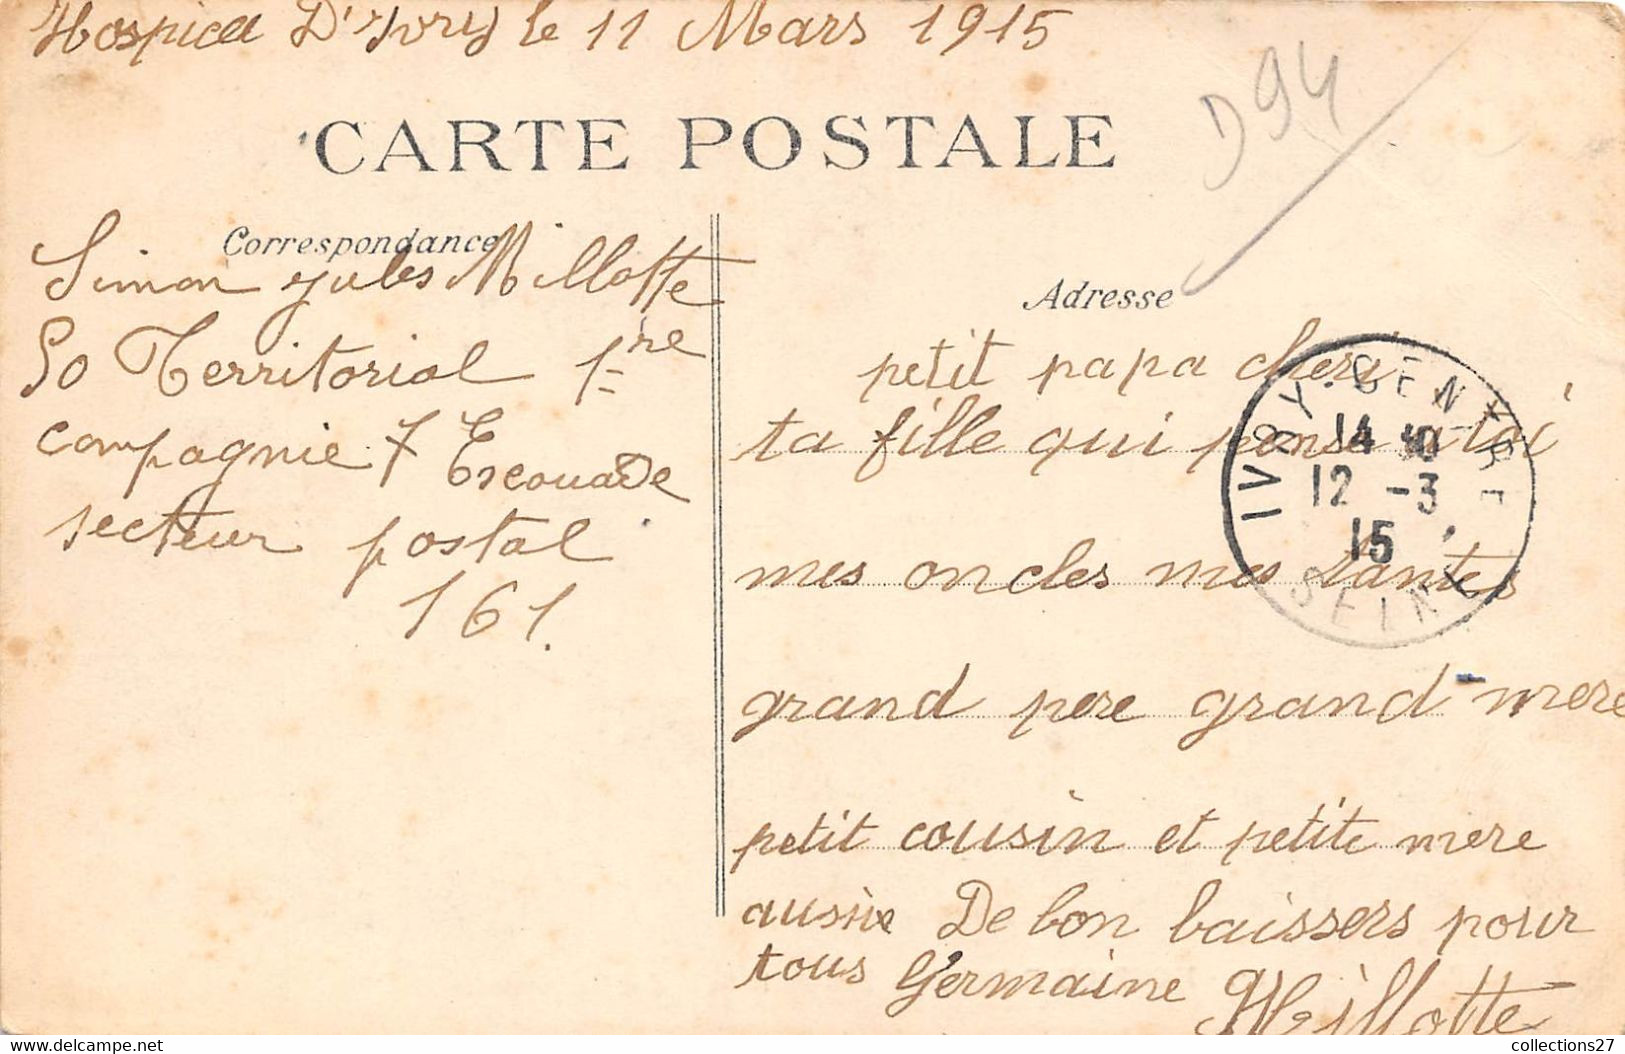 Hospice D'Ivry le 11 Mars 1915
D94
CARTE POSTALE
Correspondance
Simon Jules Millotte
50 Territorial 1re
compagnie 7 Escouade
secteur postal
161.
Adresse
petit papa cheri
ta fille qui pense a toi
mes oncles mes tantes
grand pere grand-mere
petit cousin et petite mere
aussie De bon baissers pour
tous Germaine Millotte
IVRY-CENTRE
14 30
12 -3
15
SEINE
© www.delcampe.net
collections27